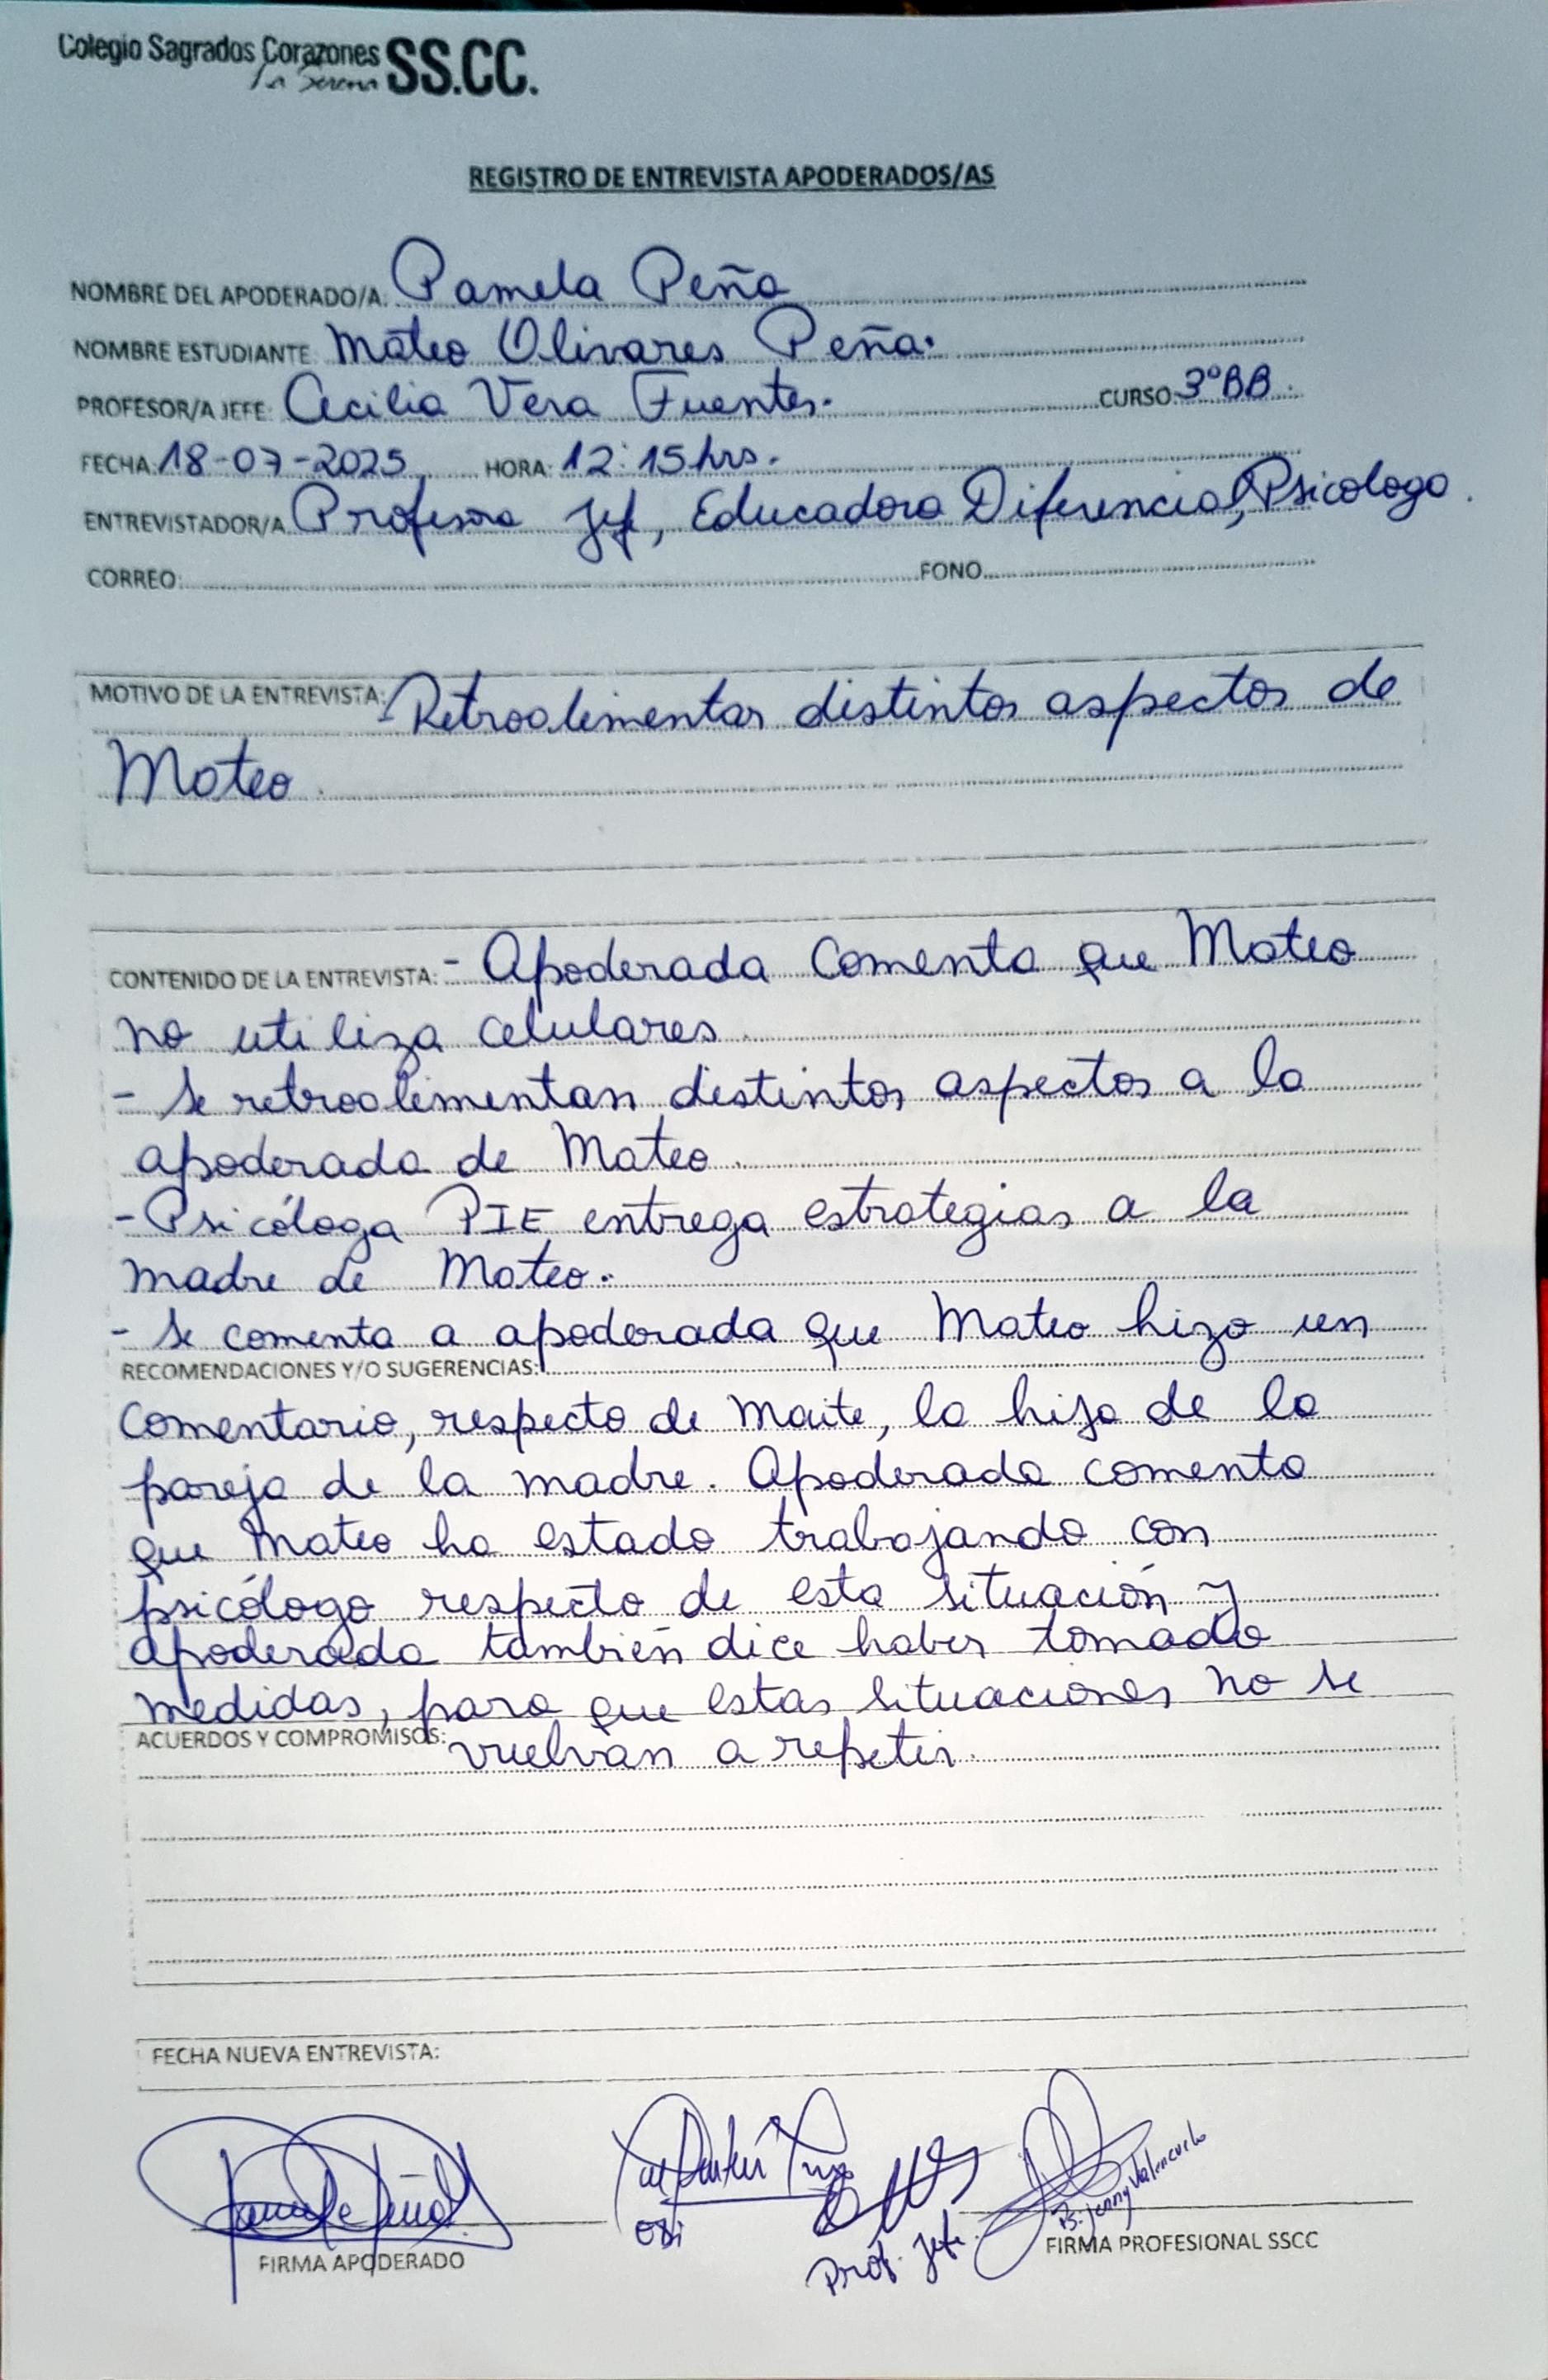 Colegio Sagrados Corazones SS.CC.
La Serena
REGISTRO DE ENTREVISTA APODERADOS/AS
NOMBRE DEL APODERADO/A: Pamela Peña
NOMBRE ESTUDIANTE: Mateo Olivares Peña.
PROFESOR/A JEFE: Cecilia Vera Fuentes. CURSO: 3°BB.
FECHA: 18-07-2025 HORA: 12:15 hrs.
ENTREVISTADOR/A Profesora Jefe, Educadora Diferencial, Psicologa.
CORREO: FONO
MOTIVO DE LA ENTREVISTA: Retroalimentar distintos aspectos de
Mateo.
CONTENIDO DE LA ENTREVISTA: - Apoderada comenta que Mateo
no utiliza celulares.
- Se retroalimentan distintos aspectos a la
apoderada de Mateo.
- Psicóloga PIE entrega estrategias a la
madre de Mateo.
- Se comenta a apoderada que Mateo hizo un
RECOMENDACIONES Y/O SUGERENCIAS:
comentario, respecto de Maite, la hija de la
pareja de la madre. Apoderada comenta
que Mateo ha estado trabajando con
psicólogo respecto de esta situación y
apoderada también dice haber tomado
medidas, para que estas situaciones no se
ACUERDOS Y COMPROMISOS: vuelvan a repetir.
FECHA NUEVA ENTREVISTA:
Pamela Peña
Prof. Jefe.
Ps. Jenny Valenzuela
FIRMA APODERADO
FIRMA PROFESIONAL SSCC